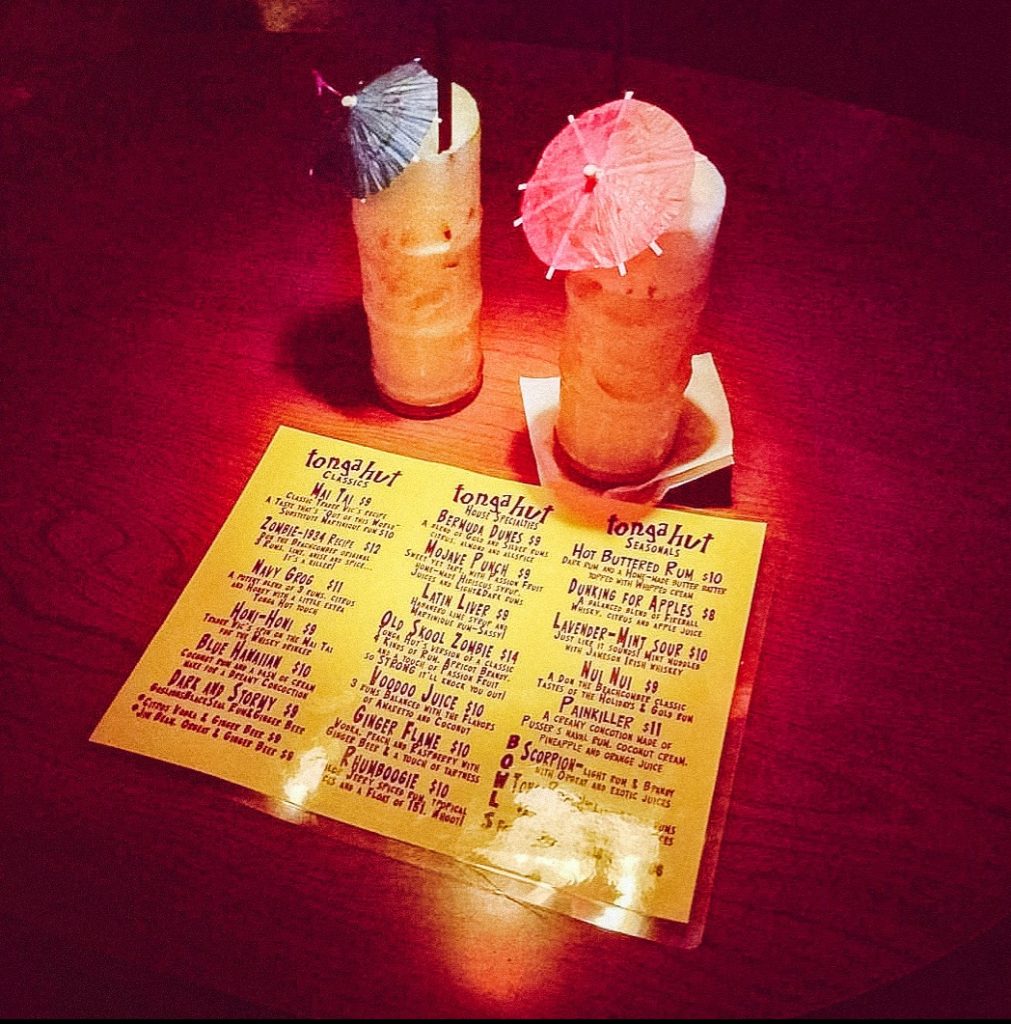 tonga hut
CLASSICS
MAI TAI $9
CLASSIC TRADER VIC'S RECIPE
A TASTE THAT'S "OUT OF THIS WORLD"
SUBSTITUTE MARTINIQUE RUM $10
ZOMBIE-1934 RECIPE $12
DON THE BEACHCOMBER ORIGINAL
RUMS, LIME, ANISE AND SPICE...
IT'S A KILLER!
NAVY GROG $11
A POTENT BLEND OF 3 RUMS, CITRUS
AND HONEY WITH A LITTLE EXTRA
TONGA HUT TOUCH
HONI-HONI $9
TRADER VIC'S SPIN ON THE MAI TAI
FOR THE WHISKY DRINKER
BLUE HAWAIIAN $10
COCONUT RUM AND A DASH OF CREAM
MAKE FOR A DREAMY CONCOCTION
DARK AND STORMY $9
GOSLINGS BLACK SEAL RUM & GINGER BEER
*CITRUS VODKA & GINGER BEER $9
*JIM BEAM, ORGEAT & GINGER BEER $9
tonga hut
HOUSE SPECIALTIES
BERMUDA DUNES $9
A BLEND OF GOLD AND SILVER RUMS
CITRUS, ALMOND AND ALLSPICE
MOJAVE PUNCH $9
SWEET YET TART, WITH PASSION FRUIT
HOME-MADE HIBISCUS SYRUP,
JUICES AND LIGHT & DARK RUMS
LATIN LIVER $9
HABANERO LIME SYRUP AND
MARTINIQUE RUM-SASSY!
OLD SKOOL ZOMBIE $14
TONGA HUT'S VERSION OF A CLASSIC
4 KINDS OF RUM, APRICOT BRANDY,
AND A TOUCH OF PASSION FRUIT
SO STRONG IT'LL KNOCK YOU OUT!
VOODOO JUICE $10
3 RUMS BALANCED WITH THE FLAVORS
OF AMARETTO AND COCONUT
GINGER FLAME $10
VODKA, PEACH AND RASPBERRY WITH
GINGER BEER & A TOUCH OF TARTNESS
RHUMBOOGIE $10
JERRY SPICED RUM, TROPICAL
AND A FLOAT OF 151. WHOOT!
tonga hut
SEASONALS
HOT BUTTERED RUM $10
DARK RUM AND A HOME-MADE BUTTER BATTER
TOPPED WITH WHIPPED CREAM
DUNKING FOR APPLES $8
A BALANCED BLEND OF FIREBALL
WHISKY, CITRUS AND APPLE JUICE
LAVENDER-MINT SOUR $10
JUST LIKE IT SOUNDS! MINT MUDDLED
WITH JAMESON IRISH WHISKEY
NUI NUI $9
A DON THE BEACHCOMBER CLASSIC
TASTES OF THE HOLIDAYS & GOLD RUM
PAINKILLER $11
A CREAMY CONCOTION MADE OF
PUSSER'S NAVAL RUM, COCONUT CREAM,
PINEAPPLE AND ORANGE JUICE
BOWLS
SCORPION-LIGHT RUM & BRANDY
WITH ORGEAT AND EXOTIC JUICES